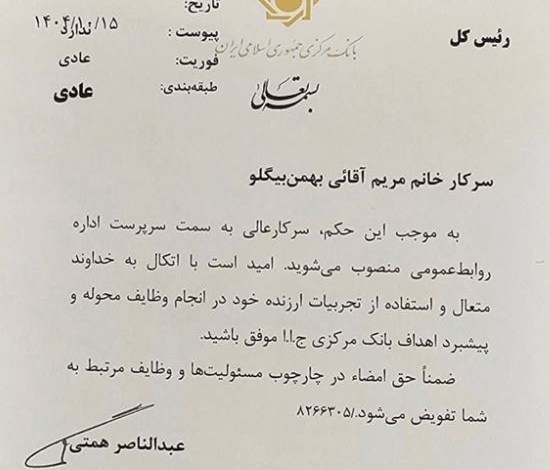 تاریخ: ۱۴۰۴/۱۰/۱۵
پیوست : ندارد
فوریت: عادی
طبقه‌بندی: عادی
رئیس کل
بانک مرکزی جمهوری اسلامی ایران
بسمه تعالی
سرکار خانم مریم آقائی بهمن‌بیگلو
به موجب این حکم، سرکارعالی به سمت سرپرست اداره
روابط‌عمومی منصوب می‌شوید. امید است با اتکال به خداوند
متعال و استفاده از تجربیات ارزنده خود در انجام وظایف محوله و
پیشبرد اهداف بانک مرکزی ج.ا.ا موفق باشید.
ضمناً حق امضاء در چارچوب مسئولیت‌ها و وظایف مرتبط به
شما تفویض می‌شود./۸۲۶۶۳۰۵
عبدالناصر همتی